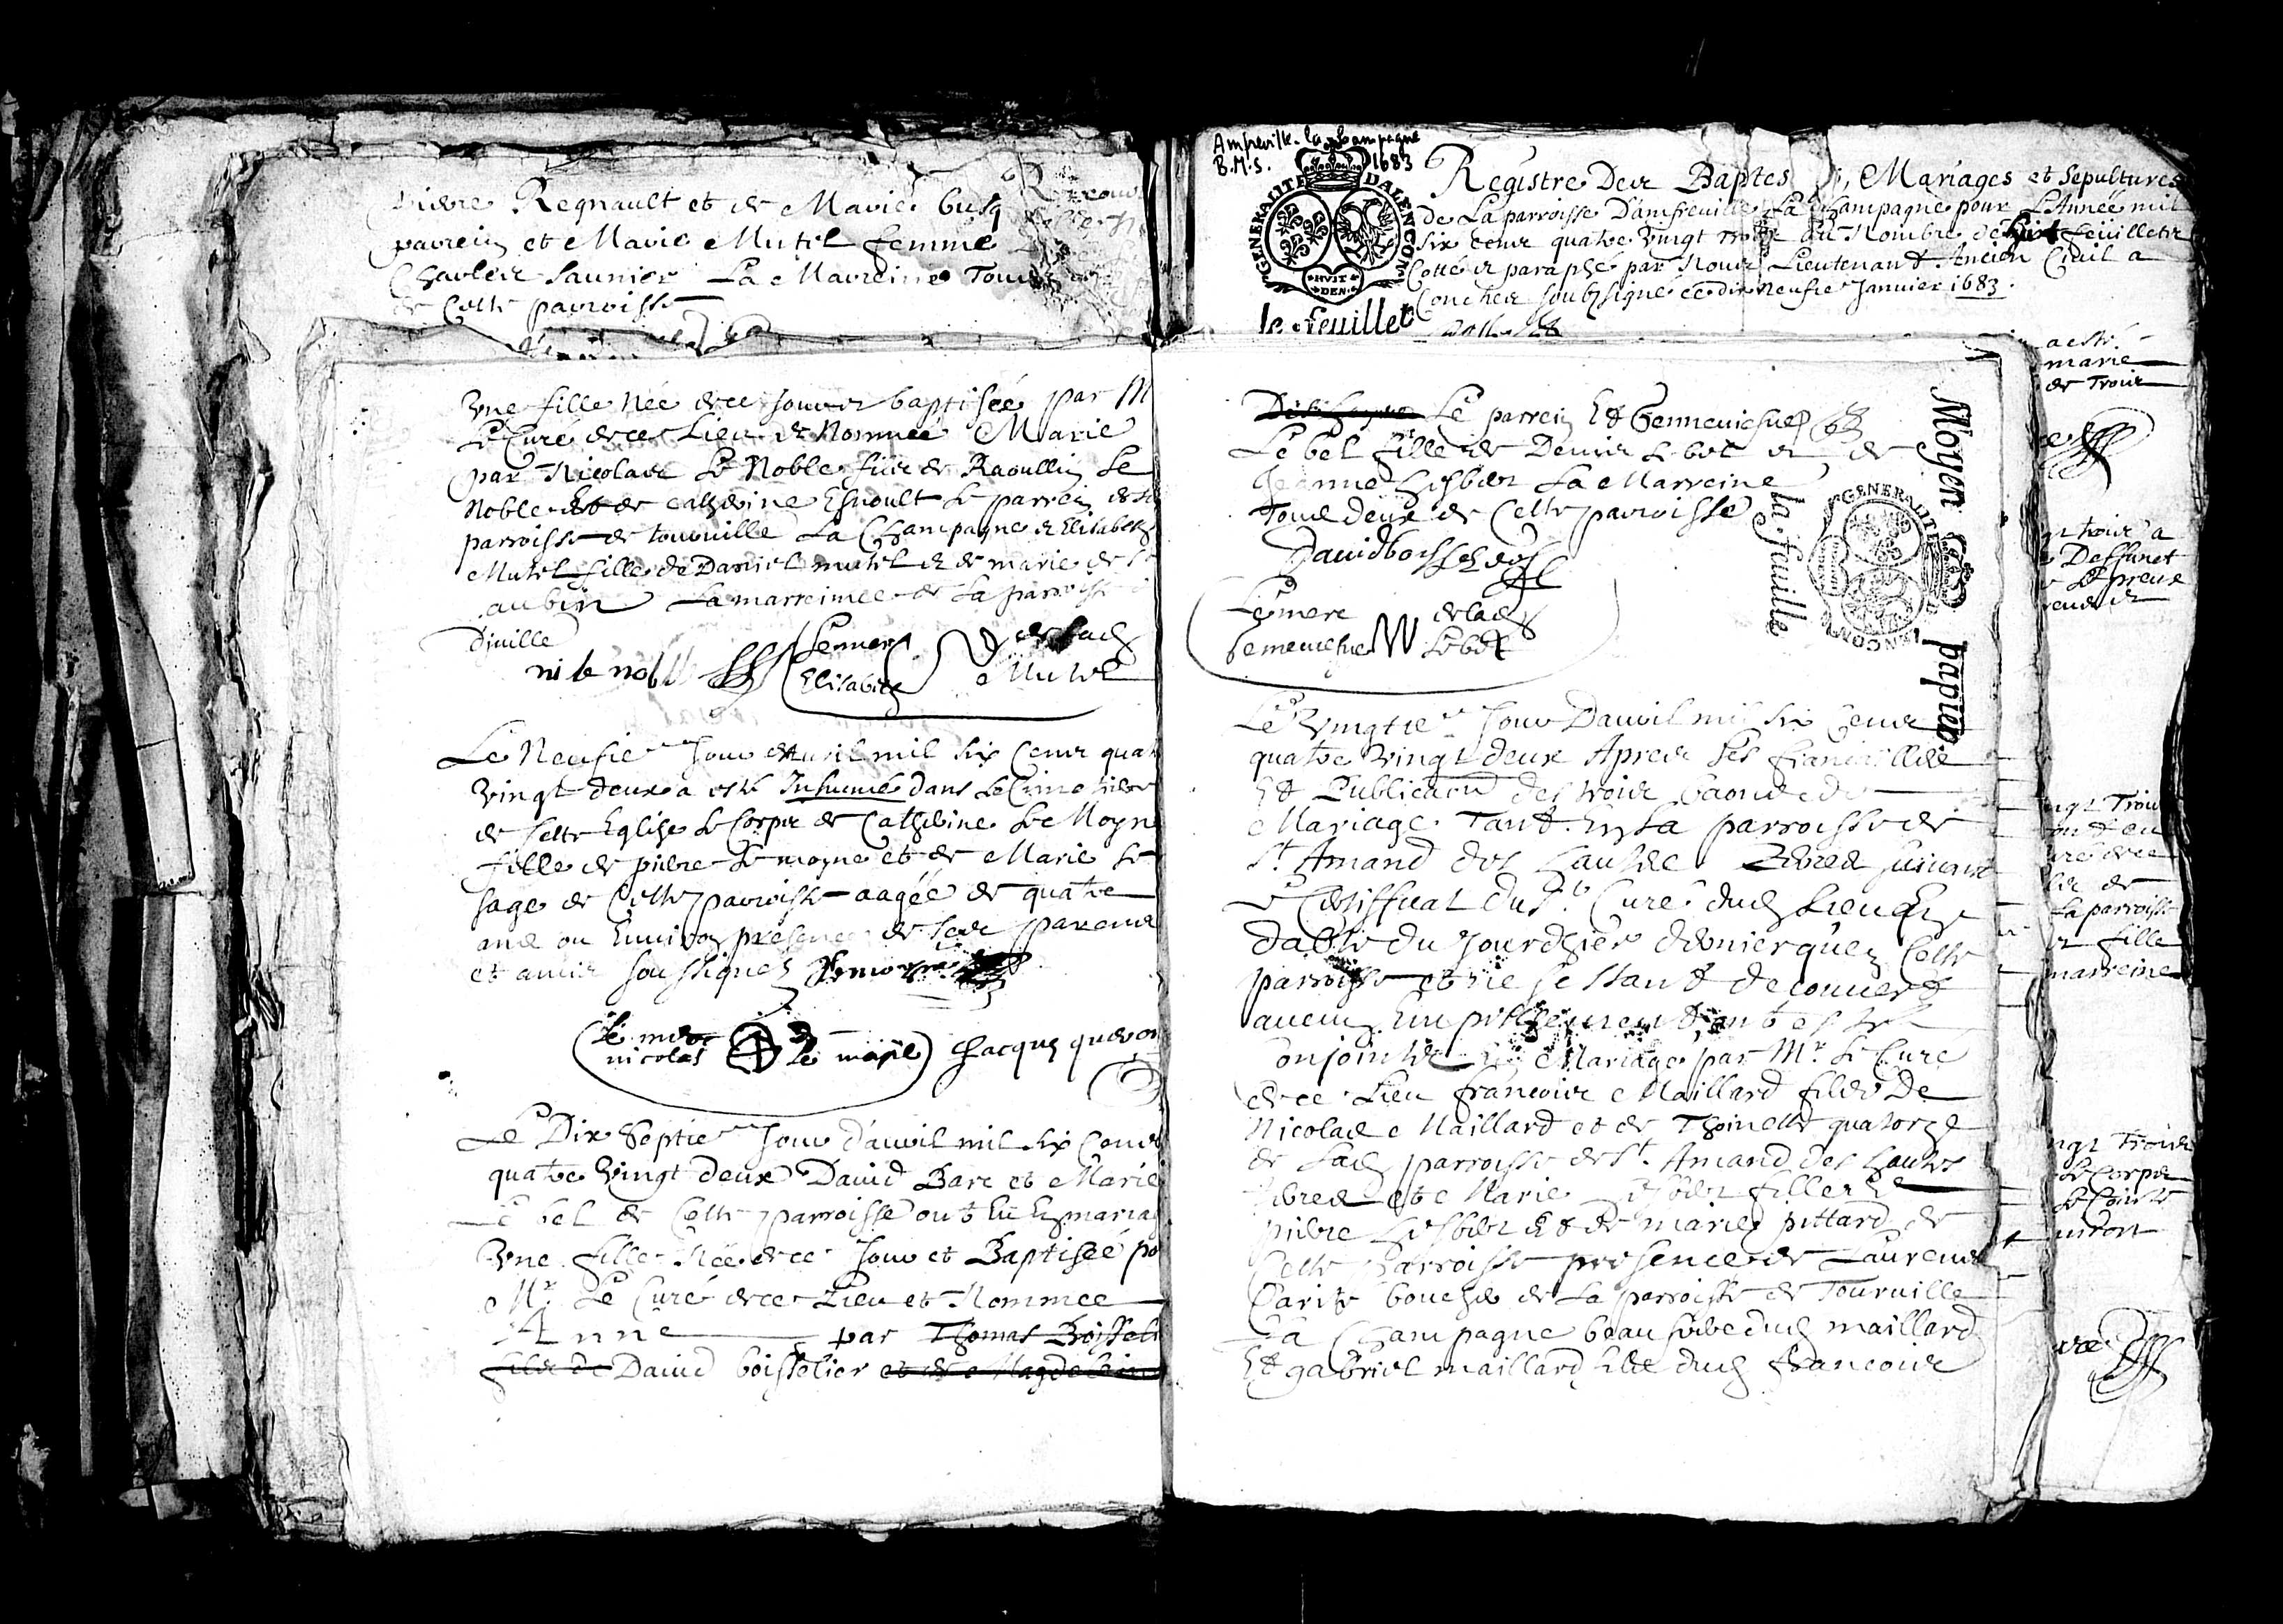 Regnault et de Marie busq
parrein et Marie Mutel femme
Charles Saunier La Marreine Tous
de Cette parroisse
Une fille Née de ce Jour et baptisée par M
Le Curé de ce Lieu et Nommée Marie
par Nicolas Le Noble fils de Raoullin Le
Noble Et de Catherine Esnoult Le parrein de la
parroisse de touruille La Champagne et Elisabeth
Mutel fille de Daniel mutel et de marie de St
aubin La marreinne de La parroisse
Diuille
ni le noble
Le merc de lad
Elisabeth Mutel
Le Neufie Jour d'Auril mil six Cents quatre
Vingt deux a esté Inhumé dans Le Cimetiere
de Cette Eglise Le Corps de Catherine Le Moyne
fille de pierre Le moyne et de Marie Le
sage de Cette parroisse aagée de quatre
ans ou Enuiron presence de ses parens
et amis soussignés
Le merc
nicolas le moyne Jacques queron
Le Dix Septie Jour d'auril mil six Cents
quatre Vingt deux Dauid Barc et Marie
Le bel de Cette parroisse ont Eu En mariage
Une fille Née de ce Jour et Baptisée par
Mr Le Curé de ce Lieu et Nommée
Anne par Thomas Boisseli
fils de Dauid boisselier et de Magdelaine
Ampreville-la-Champagne
B.M.S. 1683
GENERALITE DALENCON
HVIT DEN.
le feuillet
Registre Des Baptes, Mariages et Sepultures
de La parroisse D'amfreuille La Champagne pour L'Année mil
six cens quatre vingt trois au Nombre de huit feüillets
Cotté et paraphé par Nous Lieutenant Ancien Ciuil a
Conches soubsigné ce dix neufie Januier 1683.
Le parrein Et Genneuiefue
Le bel fille de Denis Le bel et de
Jeanne Hesbert La Marreine
Tous deux de Cette parroisse
Dauid boisselier
Le merc de lad
Genneuiefue Le bel
Moyen papier
GENERALITE
la feuille
Le Vingtie Jour D'auril mil six Cens
quatre Vingt deux Apres Les fiansailles
Et Publication des trois bans de
Mariage Tant En La parroisse de
St Amand des hautes Terres suiuant
Le Certifficat du Sr Curé dud Lieu En
datte du Jour d'hier dernier qu'en Cette
parroisse et ne s'estant decouuert
aucun Empeschement ont esté
Conjoints En Mariage par Mr Le Curé
de ce Lieu francois Maillard fils De
Nicolas Maillard et de Thoinette quatorze
de Lad parroisse de St. Amand des hautes
terres et Marie Hesbert fille de
pierre Hesbert Et de marie pittard de
Cette parroisse presence de Laurens
Carité boucher de La parroisse de Touruille
La Champagne beau frere dud maillard
Et gabriel maillard dud francois
a esté
marié
de Trois
trois a
Deffunct
La parroisse
et fille
marreine
Trois
Le Corps
Le Comte